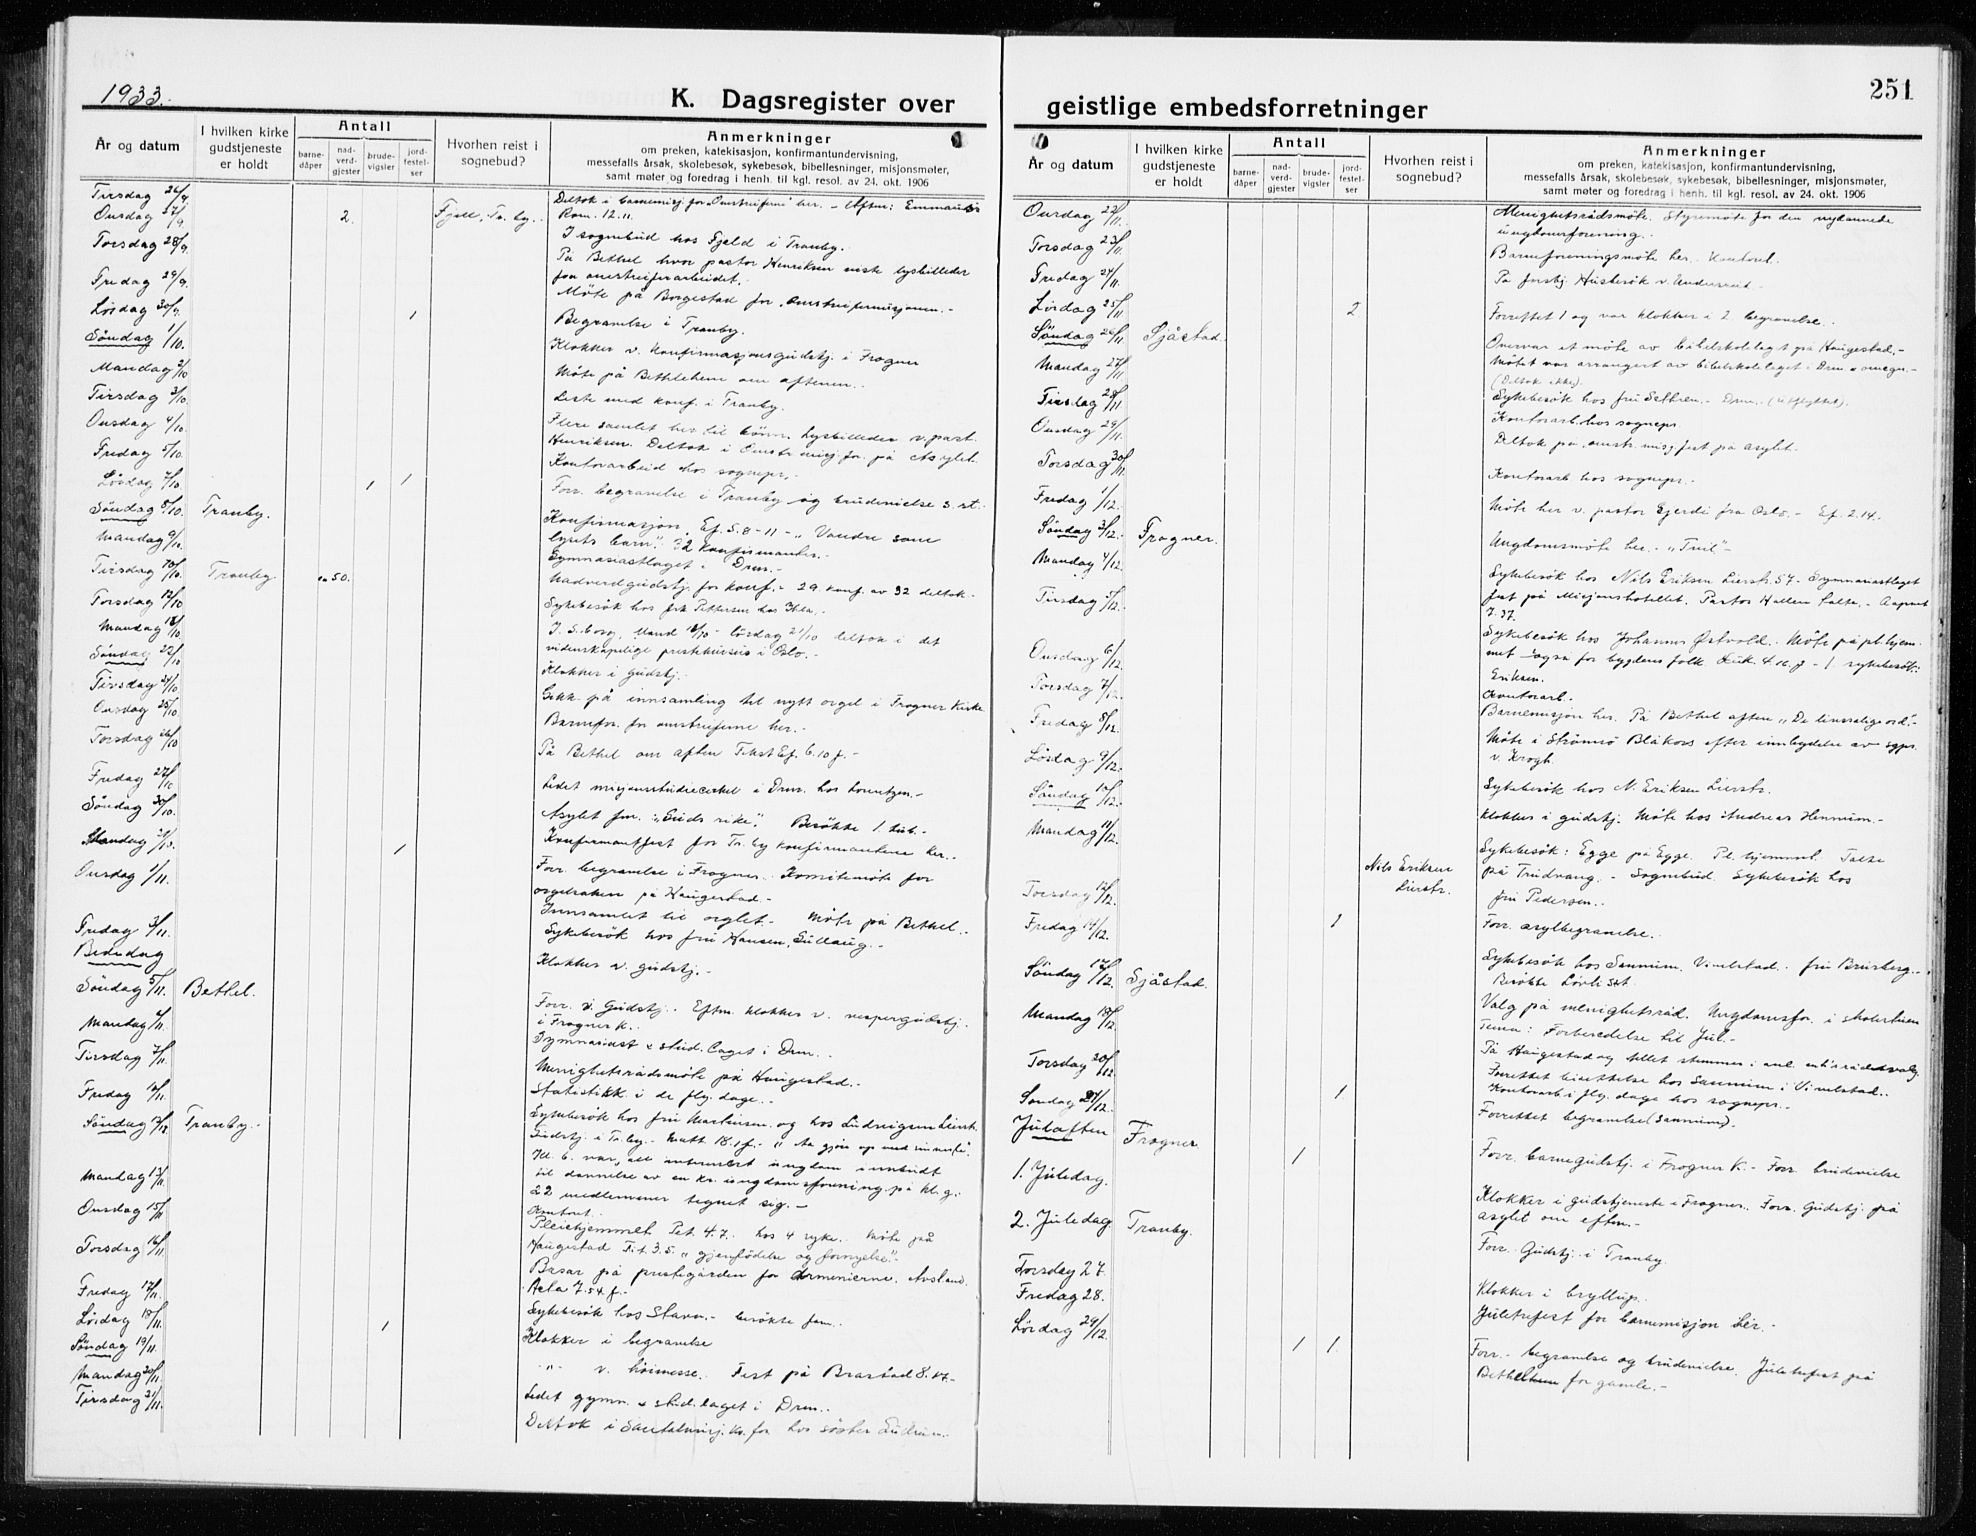 1933.
K. Dagsregister over
År og datum
I hvilken kirke gudstjeneste er holdt
Antall
barne-dåper
nad-verd-gjester
brude-vigsler
jord-festel-ser
Hvorhen reist i sognebud?
Anmerkninger
om preken, katekisasjon, konfirmantundervisning,
messefalls årsak, skolebesøk, sykebesøk, bibellesninger, misjonsmøter,
samt møter og foredrag i henh. til kgl. resol. av 24. okt. 1906
Tirsdag 26/9.
Onsdag 27/9 2. Fjell, Tr. by.
Torsdag 28/9.
Fredag 29/9.
Lørdag 30/9. 1
Søndag 1/10.
Mandag 2/10
Tirsdag 3/10.
Onsdag 4/10
Fredag 5/10.
Lørdag 7/10. 1 1
Søndag 8/10. Tranby.
Mandag 9/10.
Tirsdag 10/10. Tranby. ca 50.
Torsdag 12/10
Mandag 16/10.
Søndag 22/10
Tirsdag 24/10.
Onsdag 25/10
Torsdag 26/10
Fredag 27/10
Søndag 30/10.
Mandag 31/10. 1
Onsdag 1/11.
Fredag 3/11.
Bededag
Søndag 5/11. Bethel.
Mandag 6/11.
Tirsdag 7/11.
Fredag 10/11.
Søndag 12/12 Tranby.
Mandag 13/11.
Onsdag 15/11
Torsdag 16/11.
Fredag 17/11.
Lørdag 18/11. 1
Søndag 19/11.
Mandag 20/11.
Tirsdag 21/11.
Deltok i barnemisj for Omstreiferne her. - Aften: Emmaus
Rom. 12.11.
I sognebud hos Fjeld i Tranby.
På Bethel hvor pastor Henriksen viste lysbilleder
fra omstreiferarbeidet.
Møte på Borgestad for Omstreifermisjonen.-
Begravelse i Tranby.
Klokker v. konfirmasjonsgudstj. i Frogner
Møte på Bethlehem om aftenen.
Leste med konf. i Tranby.
Flere samlet her til lysbilleder v. past.
Henriksen. Deltok i Omstr misj. for. på Asylet.
Kontorarbeid hos sognepr.
Forr. begravelse i Tranby og brudevielse s. st.
Konfirmasjon. Ef. 5. 8-11 - "Vandre som
lysets barn". 32 konfirmanter.-
Gymnasiastlaget i Drm.-
Nadverdgudstj. for konf. - 29 konf. av 32 deltok.-
Sykebesøk hos frk Pettersen
I. S. borg, Mand 16/10 - lørdag 21/10 deltok i det
videnskapelige prestekursus i Oslo.-
Klokker i gudstj.
Gikk på innsamling til nytt orgel i Frogner Kirke
Barnefor. for omstreiferne her.-
På Bethel om aften Tekst Ef. 6. 10 f.-
Ledet misjonsstudiecirkel i Drm. hos Lorentzen.-
Asylet fm. : "Guds rike". Besøkte
Konfirmantfest for Tr. by konfirmantene her.-
Forr. begravelse i Frogner. Komitémøte for
orgelsaken på Haugestad.-
Innsamlet til orglet.- Møte på Bethel.-
Sykebesøk hos fru Hansen, Gullaug.-
Klokker v. gudstj.-
Forr. v. Gudstj. Eftm. klokker v. vespergudstj.
i Frogner K.
Gymnasiast & stud. laget i Drm.
Menighetsrådsmøte på Haugestad.-
Statistikk i de flg. dage.-
Sykebesøk hos fru Markussen og hos Ludvigsen Lierstr.
Gudstj. i Tr. by. - Matt 18. 1 f. - "
Kl. 6. var alle interessert ungdom innbudt
til dannelse av en kr. ungdomsforening på kl. g.:
22 medlemmer tegnet sig.-
Kontort.
Pleiehjemmet Pet. 4. 7. hos 4 syke. Møte på
Haugestad Tit. 3. 5. "gjenfødelse og fornyelse".
Basar på prestegården for Armenierne.
Acta 7. 54 f.-
Sykebesøk hos Stavn.- besøkte fam.
Klokker i begravelse
-"- v. høimesse. Fest på Brastad 8. kl.-
Ledet gymn. & stud. laget i Drm.
Deltok i Santalmisj. kv. for. hos søster Gudrun.
251
geistlige embedsforretninger
År og datum
I hvilken kirke gudstjeneste er holdt
Antall
barne-dåper
nad-verd-gjester
brude-vigsler
jord-festel-ser
Hvorhen reist i sognebud?
Anmerkninger
om preken, katekisasjon, konfirmantundervisning,
messefalls årsak, skolebesøk, sykebesøk, bibellesninger, misjonsmøter,
samt møter og foredrag i henh. til kgl. resol. av 24. okt. 1906
Onsdag 22/11.
Torsdag 23/11.
Fredag 24/11.
Lørdag 25/11 2
Søndag 26/11. Sjåstad.
Mandag 27/11
Tirsdag 28/11.
Onsdag 29/11.
Torsdag 30/11.
Fredag 1/12.
Søndag 3/12. Frogner.
Mandag 4/12.
Tirsdag 5/12.
Onsdag 6/12.
Torsdag 7/12.
Fredag 8/12.
Lørdag 9/12.
Søndag 10/12.
Mandag 11/12. Nils Eriksen Lierstr.
Torsdag 12/12.
Fredag 14/12. 1
Søndag 17/12. Sjåstad.
Mandag 18/12
Torsdag 20/12
Søndag 24/12. 1
Juleaften Frogner
1. Juledag. 1
2. Juledag Tranby.
Torsdag 27.
Fredag 28.
Lørdag 29/12. 1 1.
Menighetsrådsmøte. Styremøte for den nydannede
ungdomsforening.
Barneforeningsmøte her. Kontort.
På forbj. Husbesøk v. Anderrud.
Forrettet 1 og var klokker i 2. begravelse.
Overvar et møte av bibelskolelaget på Haugestad.-
Møtet var arrangert av bibelskolelaget i Drm. & omegn.-
(Deltok ikke).
Sykebesøk hos fru Sethren.- Drm. (utflyttet).
Kontorarb. hos sognepr.
Deltok på omstr. misj fest på asylet.
Kontorarb hos sognepr.
Møte her v. pastor Gjerdi fra Oslo.- Ef. 2. 14.
Ungdomsmøte her. - "Tvil"-
Sykebesøk hos Nils Eriksen Lierstr. 57 - Gymnasiastlaget
fest på Misjonshotellet. Pastor Hallen talte.-
7. 37.
Sykebesøk hos Johannes Østvold. Møte på pl. hjem-
met også for bygdens folk Luk. 4. 16 f - 1. sykebesøk:
Eriksen.
Kontorarb.
Barnemisjon her. På Bethel aften "De livssalige ord".-
Møte i Strømsø Blåkors efter innbydelse av sgpr.
v. Krogh.
Sykebesøk hos N. Eriksen Lierstr.
Klokker i gudstj. Møte hos Andreas Hennum.-
Sykebesøk: Egge på Egge. Pl. hjemmet. Talte
på Trudvang. - Sognebud. Sykebesøk hos
fru Pedersen.
Forr. asylbegravelse.
Sykebesøk hos Sannum, Vivelstad. fru Brusberg.
Besøkte Løvli st.
Valg på menighetsråd. Ungdomsfor. i skolestuen
Tema: Forberedelse til Jul.-
På Haugestad og tellet stemmer i anl. m.h.rådsvalg
Forrettet bisettelse hos Sannum i Vivelstad.
Kontorarb i flg. dage hos sognepr.-
Forrettet begravelse (Sannum).
Forr. barnegudstj. i Frogner K. - Forr. brudevielse
Klokker i gudstjeneste i Frogner. Forr. Gudstj. på
asylet om eftm.-
Forr. Gudstj. i Tranby.
Klokker i bryllup.
Juletrefest for barnemisjon her.-
Forr. - begravelse og brudevielse. Juletrefest på
Bethlehem for gamle.-